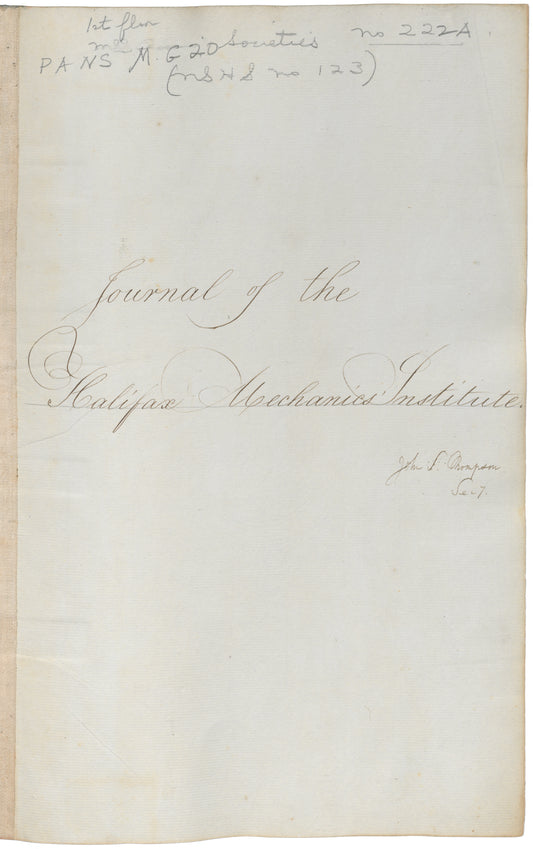 1st flr
Societies no 222A
PANS M.G 20
(NSHS no 123)
Journal of the
Halifax Mechanics' Institute.
John S. Thompson
Secy.